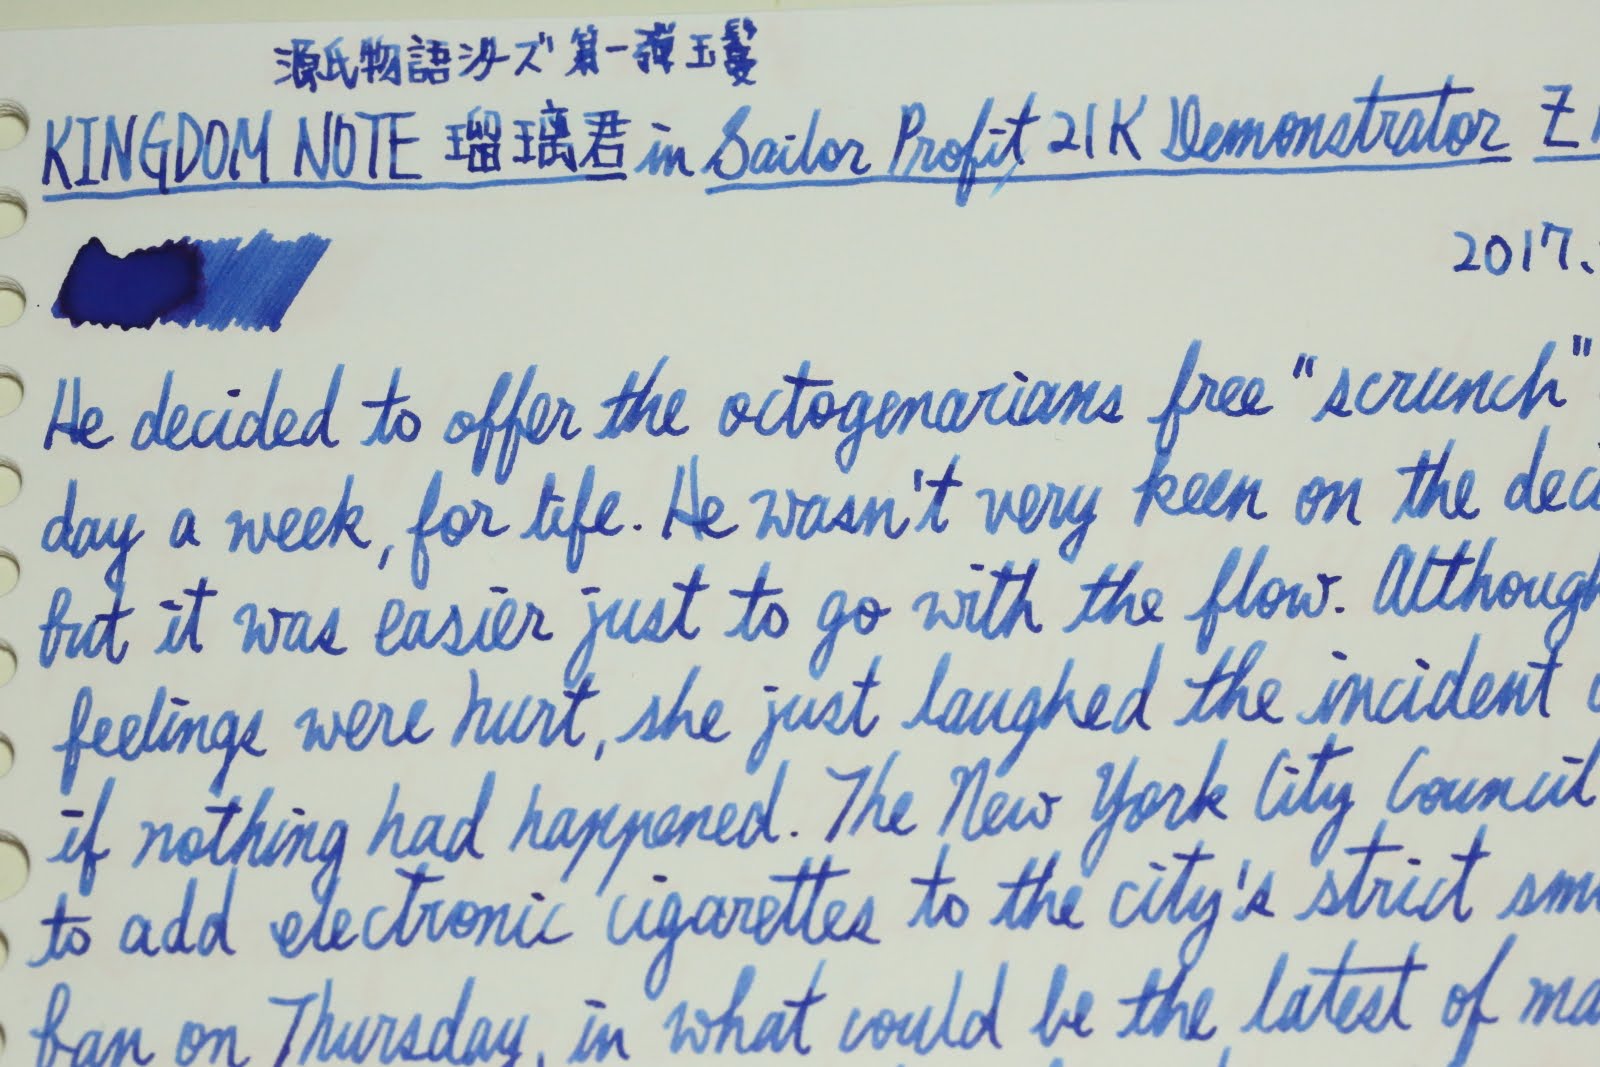 源氏物語シリーズ 第一弾 玉鬘
KINGDOM NOTE 瑠璃君 in Sailor Profit 21K Demonstrator Z
2017.
He decided to offer the octogenarians free "scrunch"
day a week, for life. He wasn't very keen on the
but it was easier just to go with the flow. Although
feelings were hurt, she just laughed the incident
if nothing had happened. The New York City Council
to add electronic cigarettes to the city's strict
ban on Thursday, in what could be the latest of